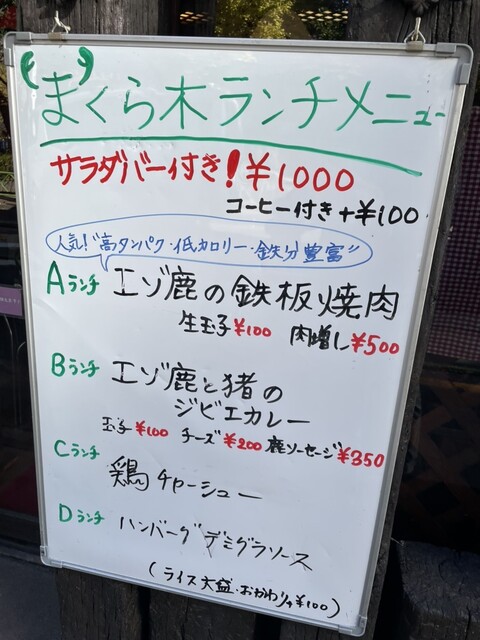 まくら木ランチメニュー
サラダバー付き!¥1000
コーヒー付き+¥100
人気!"高タンパク・低カロリー・鉄分豊富"
Aランチ エゾ鹿の鉄板焼肉
生玉子¥100 肉増し¥500
Bランチ エゾ鹿と猪の
ジビエカレー
玉子¥100 チーズ¥200 鹿ソーセージ¥350
Cランチ
鶏チャーシュー
Dランチ ハンバーグデミグラソース
(ライス大盛・おかわり+¥100)